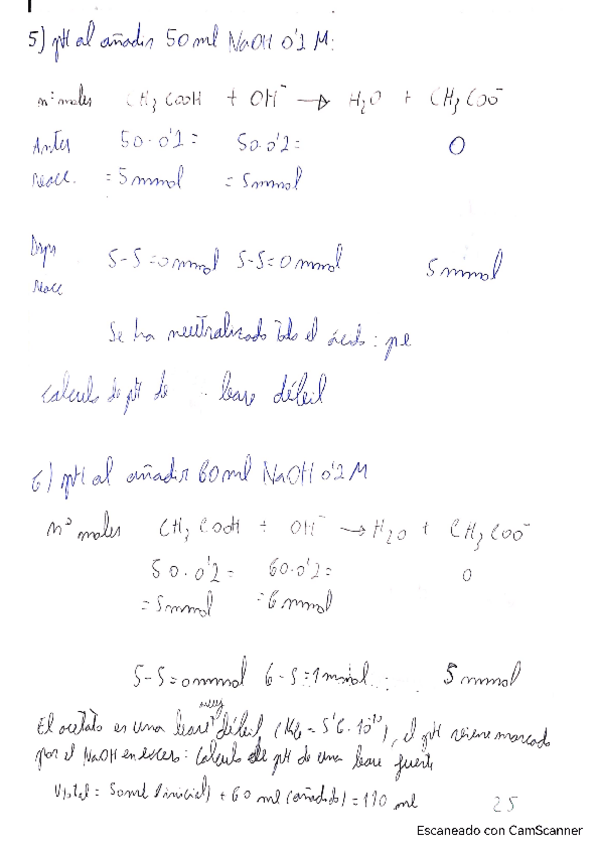 5) pH al añadir 50 ml NaOH 0'1 M:
nº moles CH3COOH + OH- → H2O + CH3COO-
Antes 50·0'1= 50·0'1= 0
reacc. =5mmol =5mmol
5-5=0mmol 5-5=0mmol 5mmol
reacc
Se ha neutralizado todo el ácido: pe
calculo de pH de base débil
6) pH al añadir 60ml NaOH 0'1 M
nº moles CH3COOH + OH- → H2O + CH3COO-
50·0'1= 60·0'1= 0
=5mmol =6mmol
5-5=0mmol 6-5=1mmol 5mmol
muy
El acetato es una base débil (Kb = 5'6·10-10), el pH viene marcado
por el NaOH en exceso: Calculo de pH de una base fuerte
Vtotal = 50ml (inicial) + 60 ml (añadido) = 110 ml
25
Escaneado con CamScanner